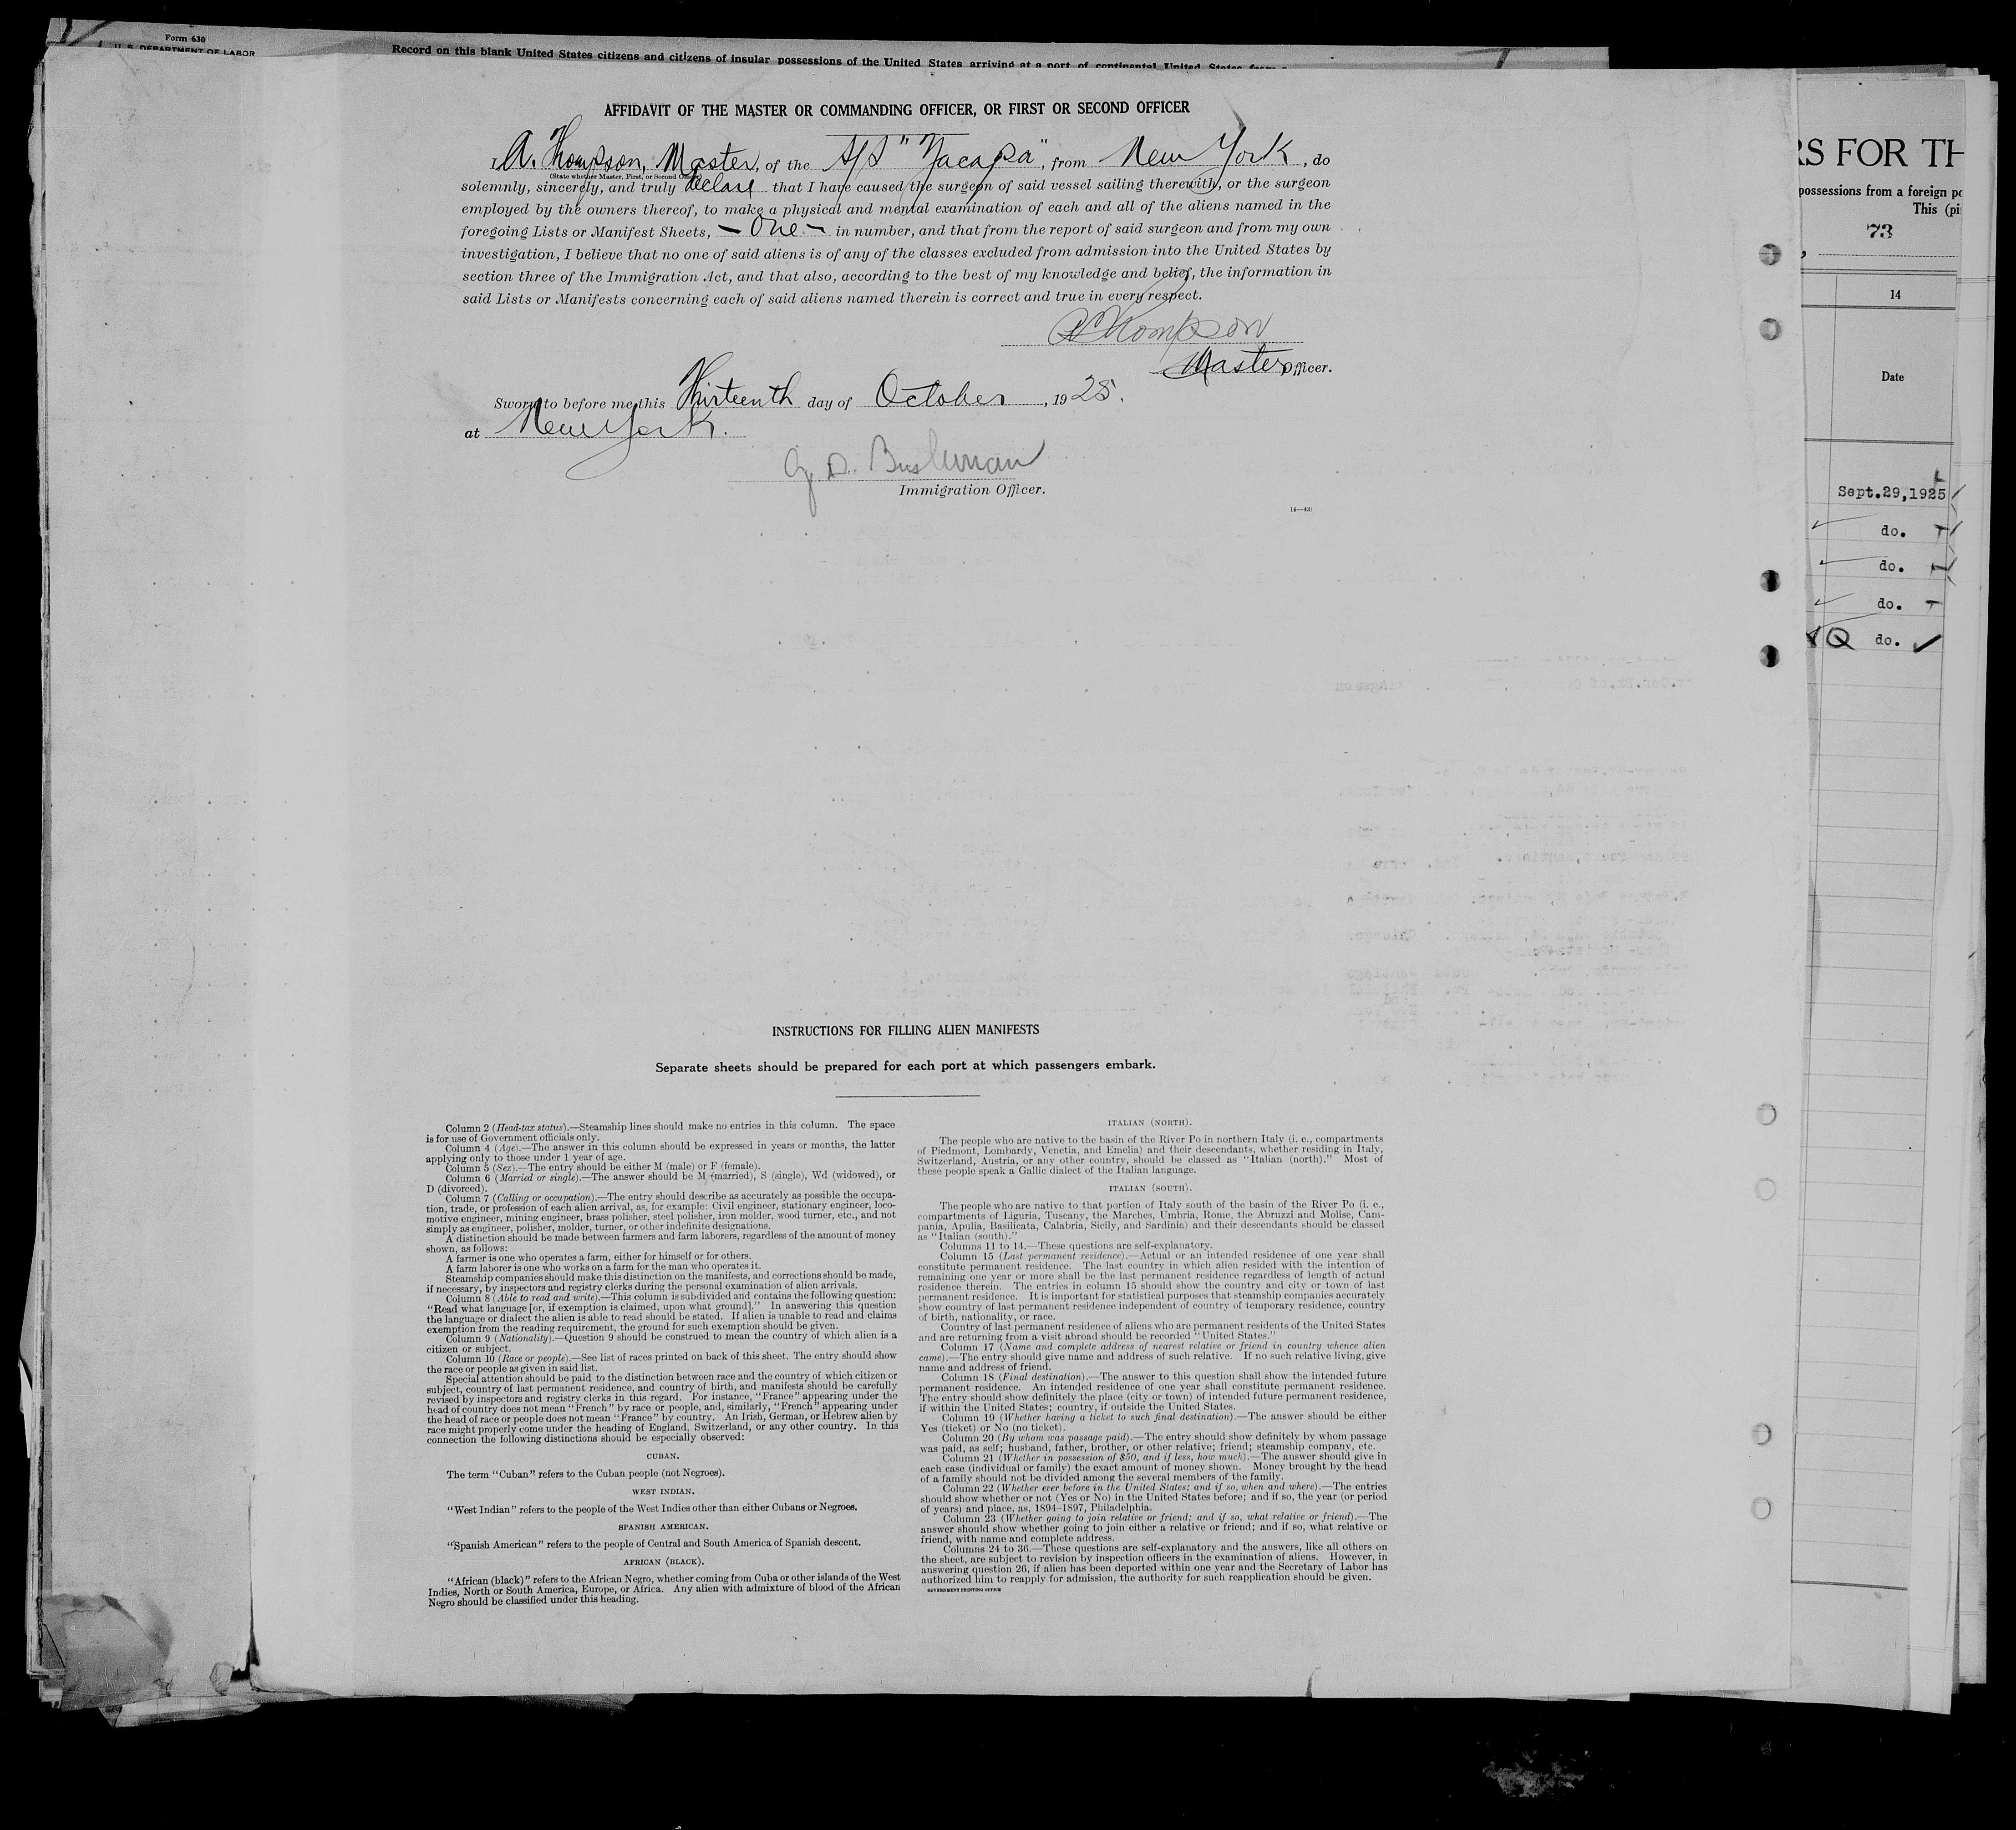 Form 630
U. S. DEPARTMENT OF LABOR
Record on this blank United States citizens and citizens of insular possessions of the United States arriving at a port of continental United States from
AFFIDAVIT OF THE MASTER OR COMMANDING OFFICER, OR FIRST OR SECOND OFFICER
I, A. Thompson, Master, of the S/S "Zacapa", from New York, do
(State whether Master, First, or Second Officer)
solemnly, sincerely, and truly declare that I have caused the surgeon of said vessel sailing therewith, or the surgeon
employed by the owners thereof, to make a physical and mental examination of each and all of the aliens named in the
foregoing Lists or Manifest Sheets, — One — in number, and that from the report of said surgeon and from my own
investigation, I believe that no one of said aliens is of any of the classes excluded from admission into the United States by
section three of the Immigration Act, and that also, according to the best of my knowledge and belief, the information in
said Lists or Manifests concerning each of said aliens named therein is correct and true in every respect.
A Thompson
Master Officer.
Sworn to before me this Thirteenth day of October, 1925.
at New York.
G. D. Bushman
Immigration Officer.
INSTRUCTIONS FOR FILLING ALIEN MANIFESTS
Separate sheets should be prepared for each port at which passengers embark.
Column 2 (Head-tax status).—Steamship lines should make no entries in this column. The space
is for use of Government officials only.
Column 4 (Age).—The answer in this column should be expressed in years or months, the latter
applying only to those under 1 year of age.
Column 5 (Sex).—The entry should be either M (male) or F (female).
Column 6 (Married or single).—The answer should be M (married), S (single), Wd (widowed), or
D (divorced).
Column 7 (Calling or occupation).—The entry should describe as accurately as possible the occupa-
tion, trade, or profession of each alien arrival, as, for example: Civil engineer, stationary engineer, loco-
motive engineer, mining engineer, brass polisher, steel polisher, iron molder, wood turner, etc., and not
simply as engineer, polisher, molder, turner, or other indefinite designations.
A distinction should be made between farmers and farm laborers, regardless of the amount of money
shown, as follows:
A farmer is one who operates a farm, either for himself or for others.
A farm laborer is one who works on a farm for the man who operates it.
Steamship companies should make this distinction on the manifests, and corrections should be made,
if necessary, by inspectors and registry clerks during the personal examination of alien arrivals.
Column 8 (Able to read and write).—This column is subdivided and contains the following question:
"Read what language [or, if exemption is claimed, upon what ground]." In answering this question
the language or dialect the alien is able to read should be stated. If alien is unable to read and claims
exemption from the reading requirement, the ground for such exemption should be given.
Column 9 (Nationality).—Question 9 should be construed to mean the country of which alien is a
citizen or subject.
Column 10 (Race or people).—See list of races printed on back of this sheet. The entry should show
the race or people as given in said list.
Special attention should be paid to the distinction between race and the country of which citizen or
subject, country of last permanent residence, and country of birth, and manifests should be carefully
revised by inspectors and registry clerks in this regard. For instance, "France" appearing under the
head of country does not mean "French" by race or people, and, similarly, "French" appearing under
the head of race or people does not mean "France" by country. An Irish, German, or Hebrew alien by
race might properly come under the heading of England, Switzerland, or any other country. In this
connection the following distinctions should be especially observed:
CUBAN.
The term "Cuban" refers to the Cuban people (not Negroes).
WEST INDIAN.
"West Indian" refers to the people of the West Indies other than either Cubans or Negroes.
SPANISH AMERICAN.
"Spanish American" refers to the people of Central and South America of Spanish descent.
AFRICAN (BLACK).
"African (black)" refers to the African Negro, whether coming from Cuba or other islands of the West
Indies, North or South America, Europe, or Africa. Any alien with admixture of blood of the African
Negro should be classified under this heading.
ITALIAN (NORTH).
The people who are native to the basin of the River Po in northern Italy (i. e., compartments
of Piedmont, Lombardy, Venetia, and Emelia) and their descendants, whether residing in Italy,
Switzerland, Austria, or any other country, should be classed as "Italian (north)." Most of
these people speak a Gallic dialect of the Italian language.
ITALIAN (SOUTH).
The people who are native to that portion of Italy south of the basin of the River Po (i. e.,
compartments of Liguria, Tuscany, the Marches, Umbria, Rome, the Abruzzi and Molise, Cam-
pania, Apulia, Basilicata, Calabria, Sicily, and Sardinia) and their descendants should be classed
as "Italian (south)."
Columns 11 to 14.—These questions are self-explanatory.
Column 15 (Last permanent residence).—Actual or an intended residence of one year shall
constitute permanent residence. The last country in which alien resided with the intention of
remaining one year or more shall be the last permanent residence regardless of length of actual
residence therein. The entries in column 15 should show the country and city or town of last
permanent residence. It is important for statistical purposes that steamship companies accurately
show country of last permanent residence independent of country of temporary residence, country
of birth, nationality, or race.
Country of last permanent residence of aliens who are permanent residents of the United States
and are returning from a visit abroad should be recorded "United States."
Column 17 (Name and complete address of nearest relative or friend in country whence alien
came).—The entry should give name and address of such relative. If no such relative living, give
name and address of friend.
Column 18 (Final destination).—The answer to this question shall show the intended future
permanent residence. An intended residence of one year shall constitute permanent residence.
The entry should show definitely the place (city or town) of intended future permanent residence,
if within the United States; country, if outside the United States.
Column 19 (Whether having a ticket to such final destination).—The answer should be either
Yes (ticket) or No (no ticket).
Column 20 (By whom was passage paid).—The entry should show definitely by whom passage
was paid, as self; husband, father, brother, or other relative; friend; steamship company, etc.
Column 21 (Whether in possession of $50, and if less, how much).—The answer should give in
each case (individual or family) the exact amount of money shown. Money brought by the head
of a family should not be divided among the several members of the family.
Column 22 (Whether ever before in the United States; and if so, when and where).—The entries
should show whether or not (Yes or No) in the United States before; and if so, the year (or period
of years) and place, as, 1894–1897, Philadelphia.
Column 23 (Whether going to join relative or friend; and if so, what relative or friend).—The
answer should show whether going to join either a relative or friend; and if so, what relative or
friend, with name and complete address.
Columns 24 to 36.—These questions are self-explanatory and the answers, like all others on
the sheet, are subject to revision by inspection officers in the examination of aliens. However, in
answering question 26, if alien has been deported within one year and the Secretary of Labor has
authorized him to reapply for admission, the authority for such reapplication should be given.
GOVERNMENT PRINTING OFFICE
RS FOR TH
possessions from a foreign po
This (pi
73
14
Date
Sept.29,1925
do.
do.
do.
Q do.